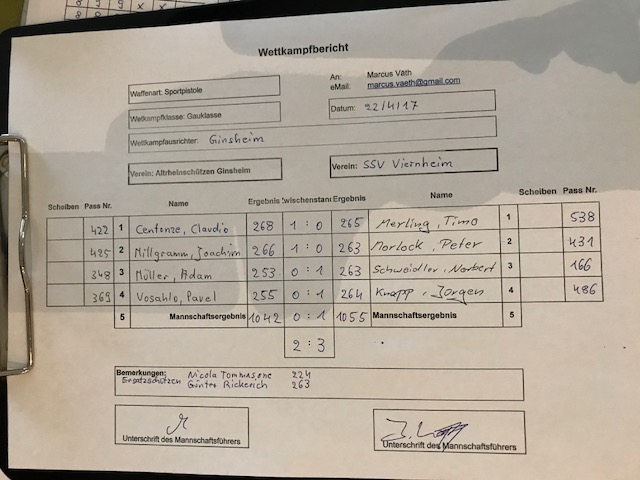 Wettkampfbericht
Waffenart: Sportpistole
An: Marcus Väth
eMail: marcus.vaeth@gmail.com
Wetkampfklasse: Gauklasse
Datum: 22/4/17
Wettkampfausrichter: Ginsheim
Verein: Altrheinschützen Ginsheim
Verein: SSV Viernheim
Scheiben Pass Nr. Name Ergebnis Zwischenstand Ergebnis Name Scheiben Pass Nr.
422 1 Centonze, Claudio 268 1 : 0 265 Merling, Timo 1 538
425 2 Millgramm, Joachim 266 1 : 0 263 Morlock, Peter 2 431
348 3 Müller, Adam 253 0 : 1 263 Schweidler, Norbert 3 166
369 4 Vosahlo, Pavel 255 0 : 1 264 Knapp, Jürgen 4 486
5 Mannschaftsergebnis 1042 0 : 1 1055 Mannschaftsergebnis 5
2 : 3
Bemerkungen: Nicola Tommasone 224
Ersatzschützen Günter Rickerich 263
Unterschrift des Mannschaftsführers
Unterschrift des Mannschaftsführers